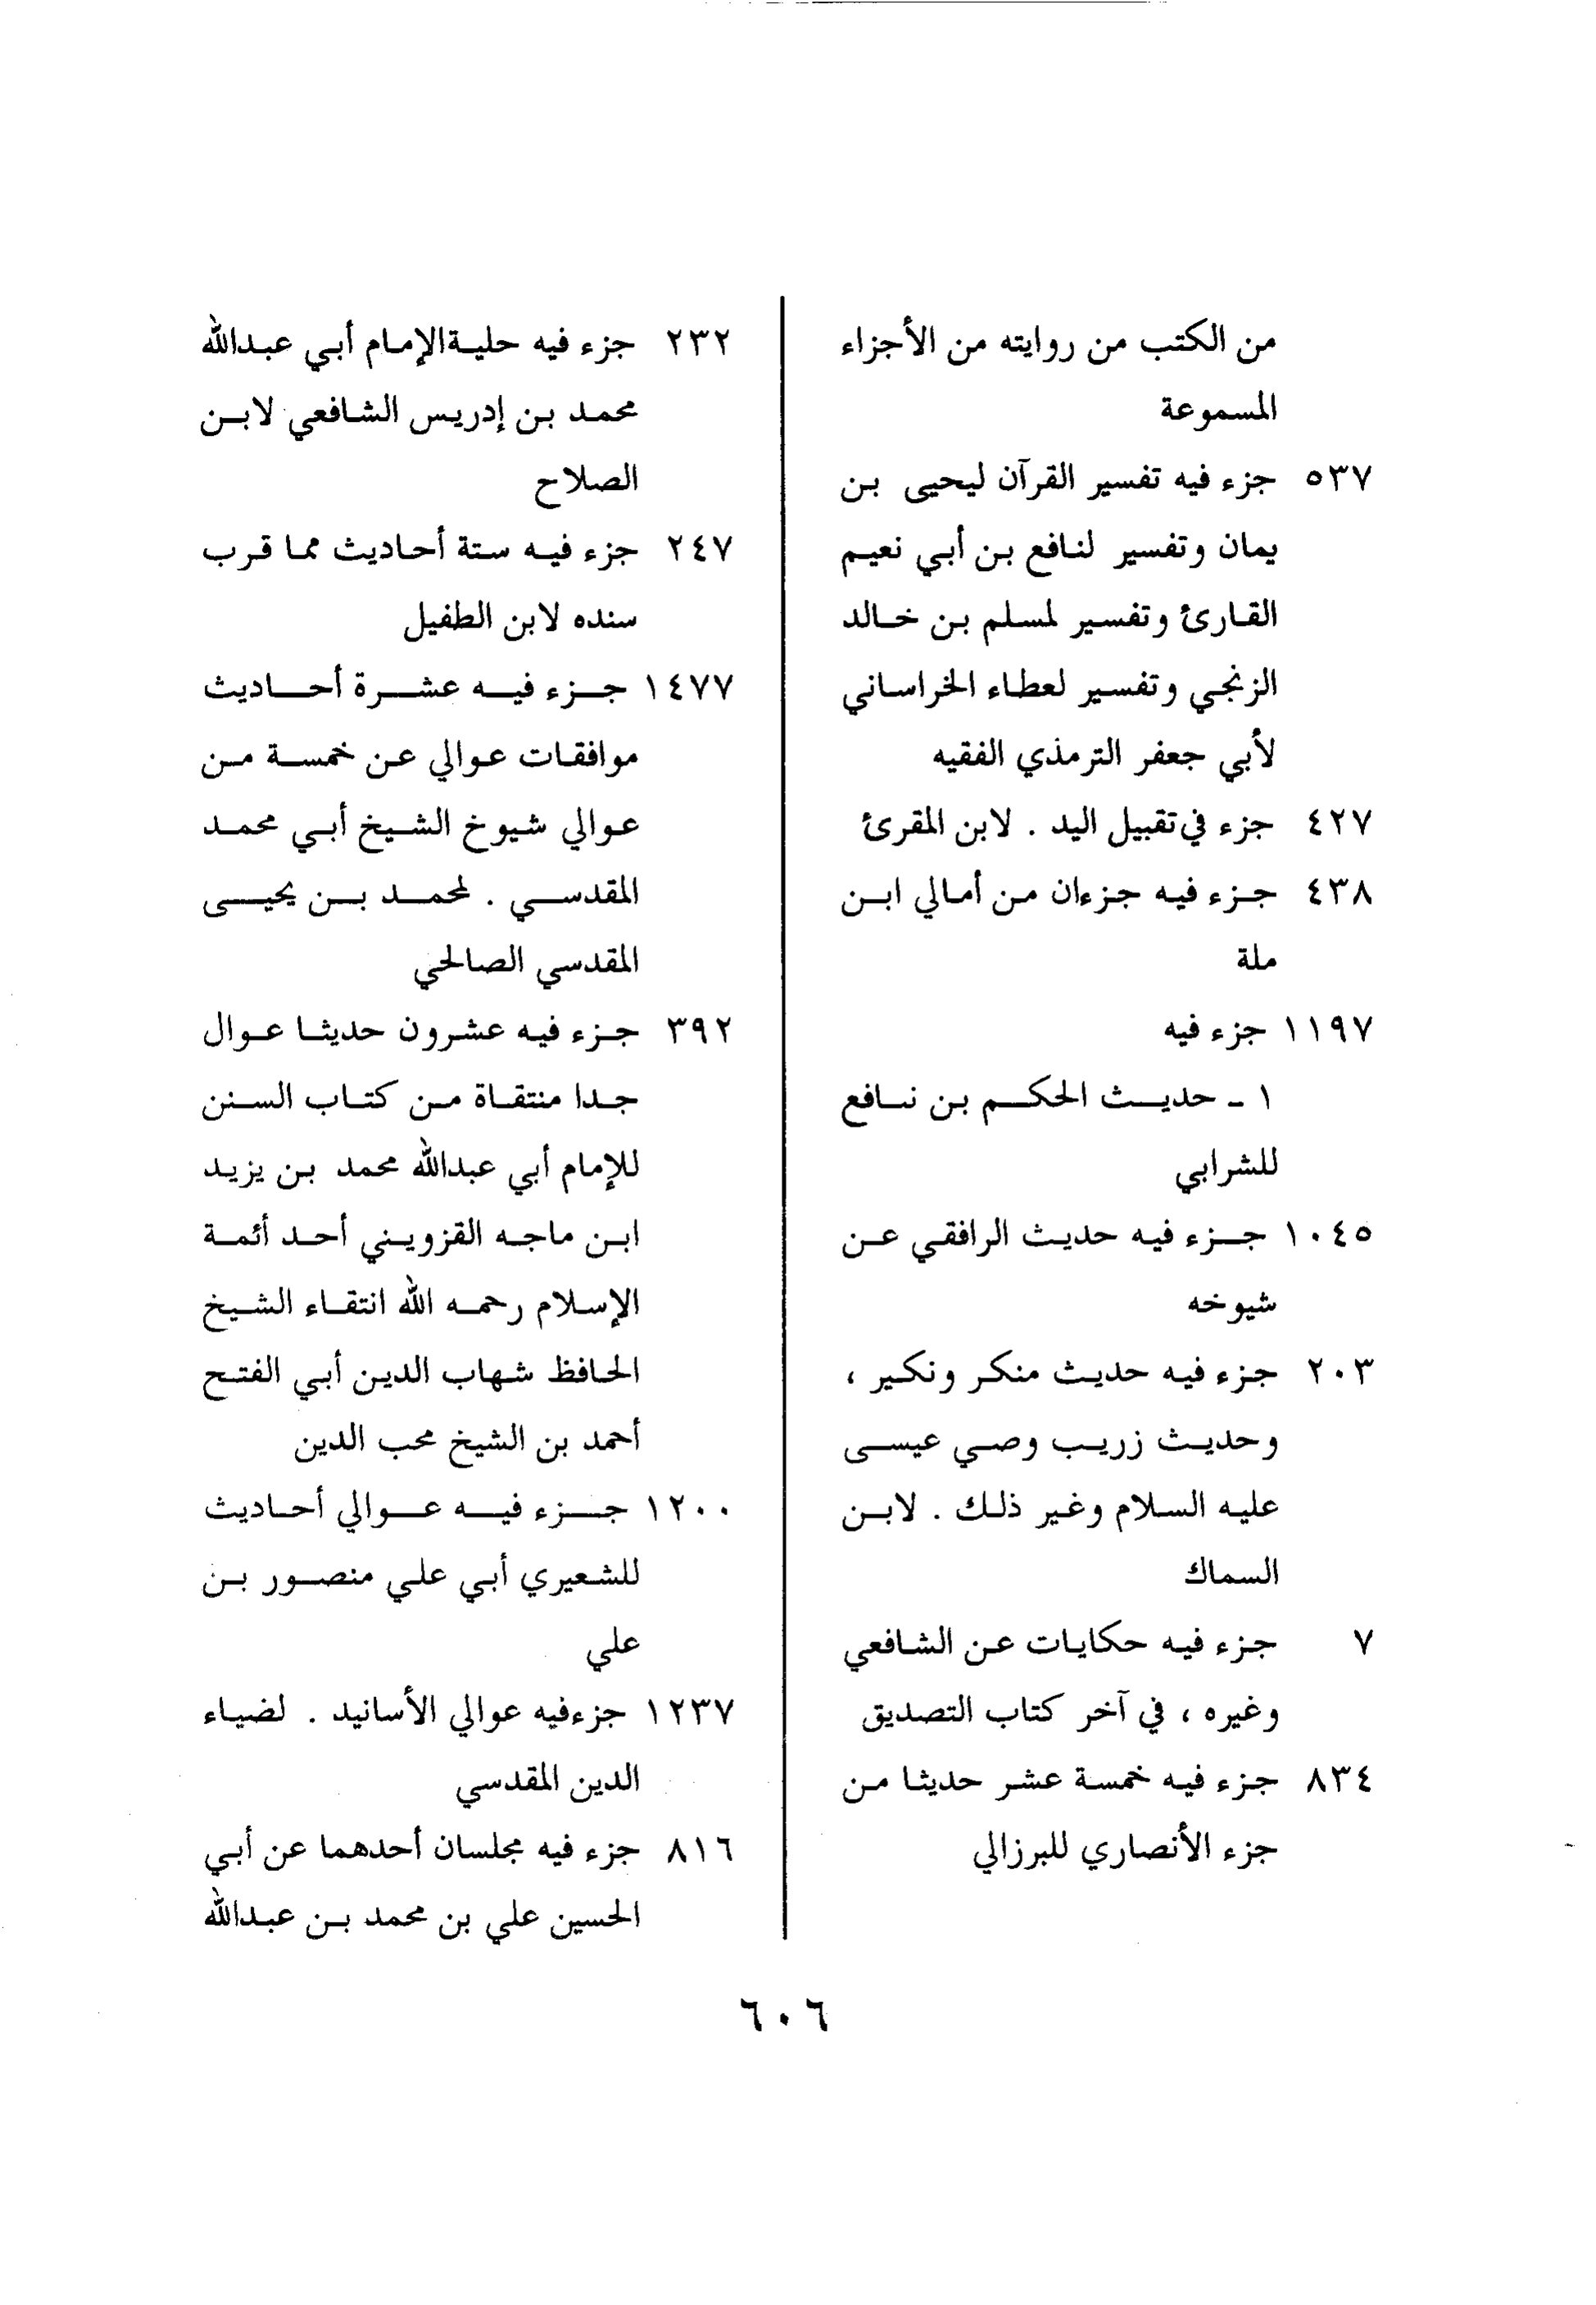 من الكتب من روايته من الأجزاء
المسموعة
٥٣٧ جزء فيه تفسير القرآن ليحيى بن
يمان وتفسير لنافع بن أبي نعيم
القارئ وتفسير لمسلم بن خالد
الزنجي وتفسير لعطاء الخراساني
لأبي جعفر الترمذي الفقيه
٤٢٧ جزء في تقبيل اليد . لابن المقرئ
٤٣٨ جزء فيه جزءان من أمالي ابن
ملة
١١٩٧ جزء فيه
١ - حديث الحكم بن نافع
للشرابي
١٠٤٥ جزء فيه حديث الرافقي عن
شيوخه
٢٠٣ جزء فيه حديث منكر ونكير ،
وحديث زريب وصي عيسى
عليه السلام وغير ذلك . لابن
السماك
٧ جزء فيه حكايات عن الشافعي
وغيره ، في آخر كتاب التصديق
٨٣٤ جزء فيه خمسة عشر حديثا من
جزء الأنصاري للبرزالي
٢٣٢ جزء فيه حلية الإمام أبي عبدالله
محمد بن إدريس الشافعي لابن
الصلاح
٢٤٧ جزء فيه ستة أحاديث مما قرب
سنده لابن الطفيل
١٤٧٧ جزء فيه عشرة أحاديث
موافقات عوالي عن خمسة من
عوالي شيوخ الشيخ أبي محمد
المقدسي . لمحمد بن يحيى
المقدسي الصالحي
٣٩٢ جزء فيه عشرون حديثا عوال
جدا منتقاة من كتاب السنن
للإمام أبي عبدالله محمد بن يزيد
ابن ماجه القزويني أحد أئمة
الإسلام رحمه الله انتقاء الشيخ
الحافظ شهاب الدين أبي الفتح
أحمد بن الشيخ محب الدين
١٢٠٠ جزء فيه عوالي أحاديث
للشعيري أبي علي منصور بن
علي
١٢٣٧ جزء فيه عوالي الأسانيد . لضياء
الدين المقدسي
٨١٦ جزء فيه مجلسان أحدهما عن أبي
الحسين علي بن محمد بن عبدالله
٦٠٦